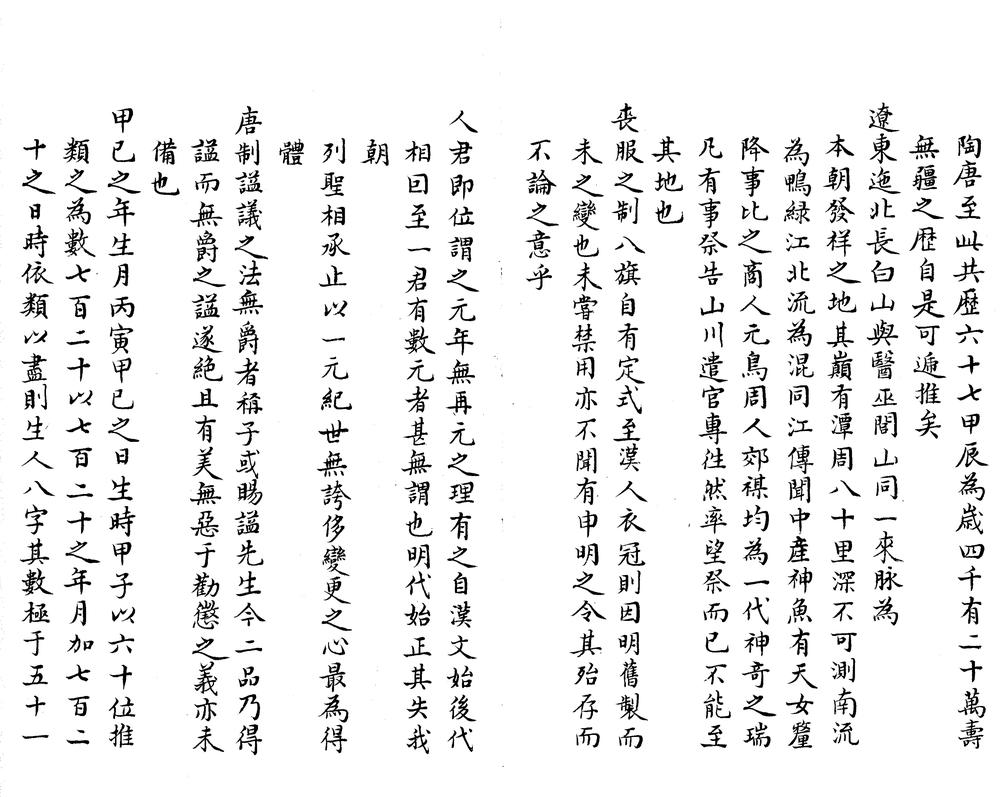 陶唐至此共歴六十七甲辰為嵗四千有二十萬壽
無疆之歴自是可遞推矣
遼東迤北長白山與醫巫閭山同一來脉為
本朝發祥之地其巔有潭周八十里深不可測南流
為鴨緑江北流為混同江傳聞中産神魚有天女釐
降事比之商人元鳥周人郊禖均為一代神奇之瑞
凡有事祭告山川遣官專徃然率望祭而已不能至
其地也
喪服之制八旗自有定式至漢人衣冠則因明舊製而
未之變也未嘗禁用亦不聞有申明之令其殆存而
不論之意乎
人君即位謂之元年無再元之理有之自漢文始後代
相因至一君有數元者甚無謂也明代始正其失我
朝
列聖相承止以一元紀世無誇侈變更之心最為得
體
唐制諡議之法無爵者稱子或賜諡先生今二品乃得
諡而無爵之諡遂絶且有美無惡于勸懲之義亦未
備也
甲己之年生月丙寅甲己之日生時甲子以六十位推
類之為數七百二十以七百二十之年月加七百二
十之日時依類以盡則生人八字其數極于五十一